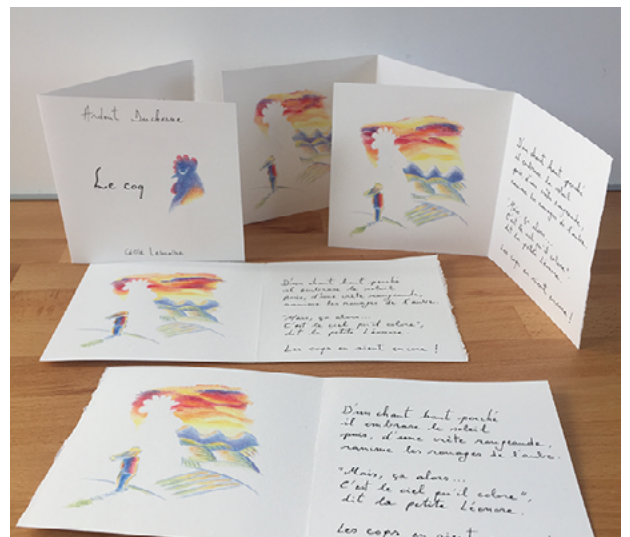 Ardent
Le coq
D'un chant haut perché
il embrase le soleil
puis, d'une crête rougeaude,
ranime les rouages de l'aube.
"Mais, ça alors...
C'est le ciel qu'il colore",
dit la petite Léonore.
Les coqs en rient encore !
D'un chant haut perché
il embrase le soleil
puis, d'une crête rougeaude,
ranime les rouages de l'aube.
"Mais, ça alors...
C'est le ciel qu'il colore",
dit la petite Léonore.
Les coqs en rient encore !
D'un chant haut perché
il embrase le soleil
puis, d'une crête rougeaude,
ranime les rouages de l'aube.
"Mais, ça alors...
C'est le ciel qu'il colore",
dit la petite Léonore.
Les coqs en rient